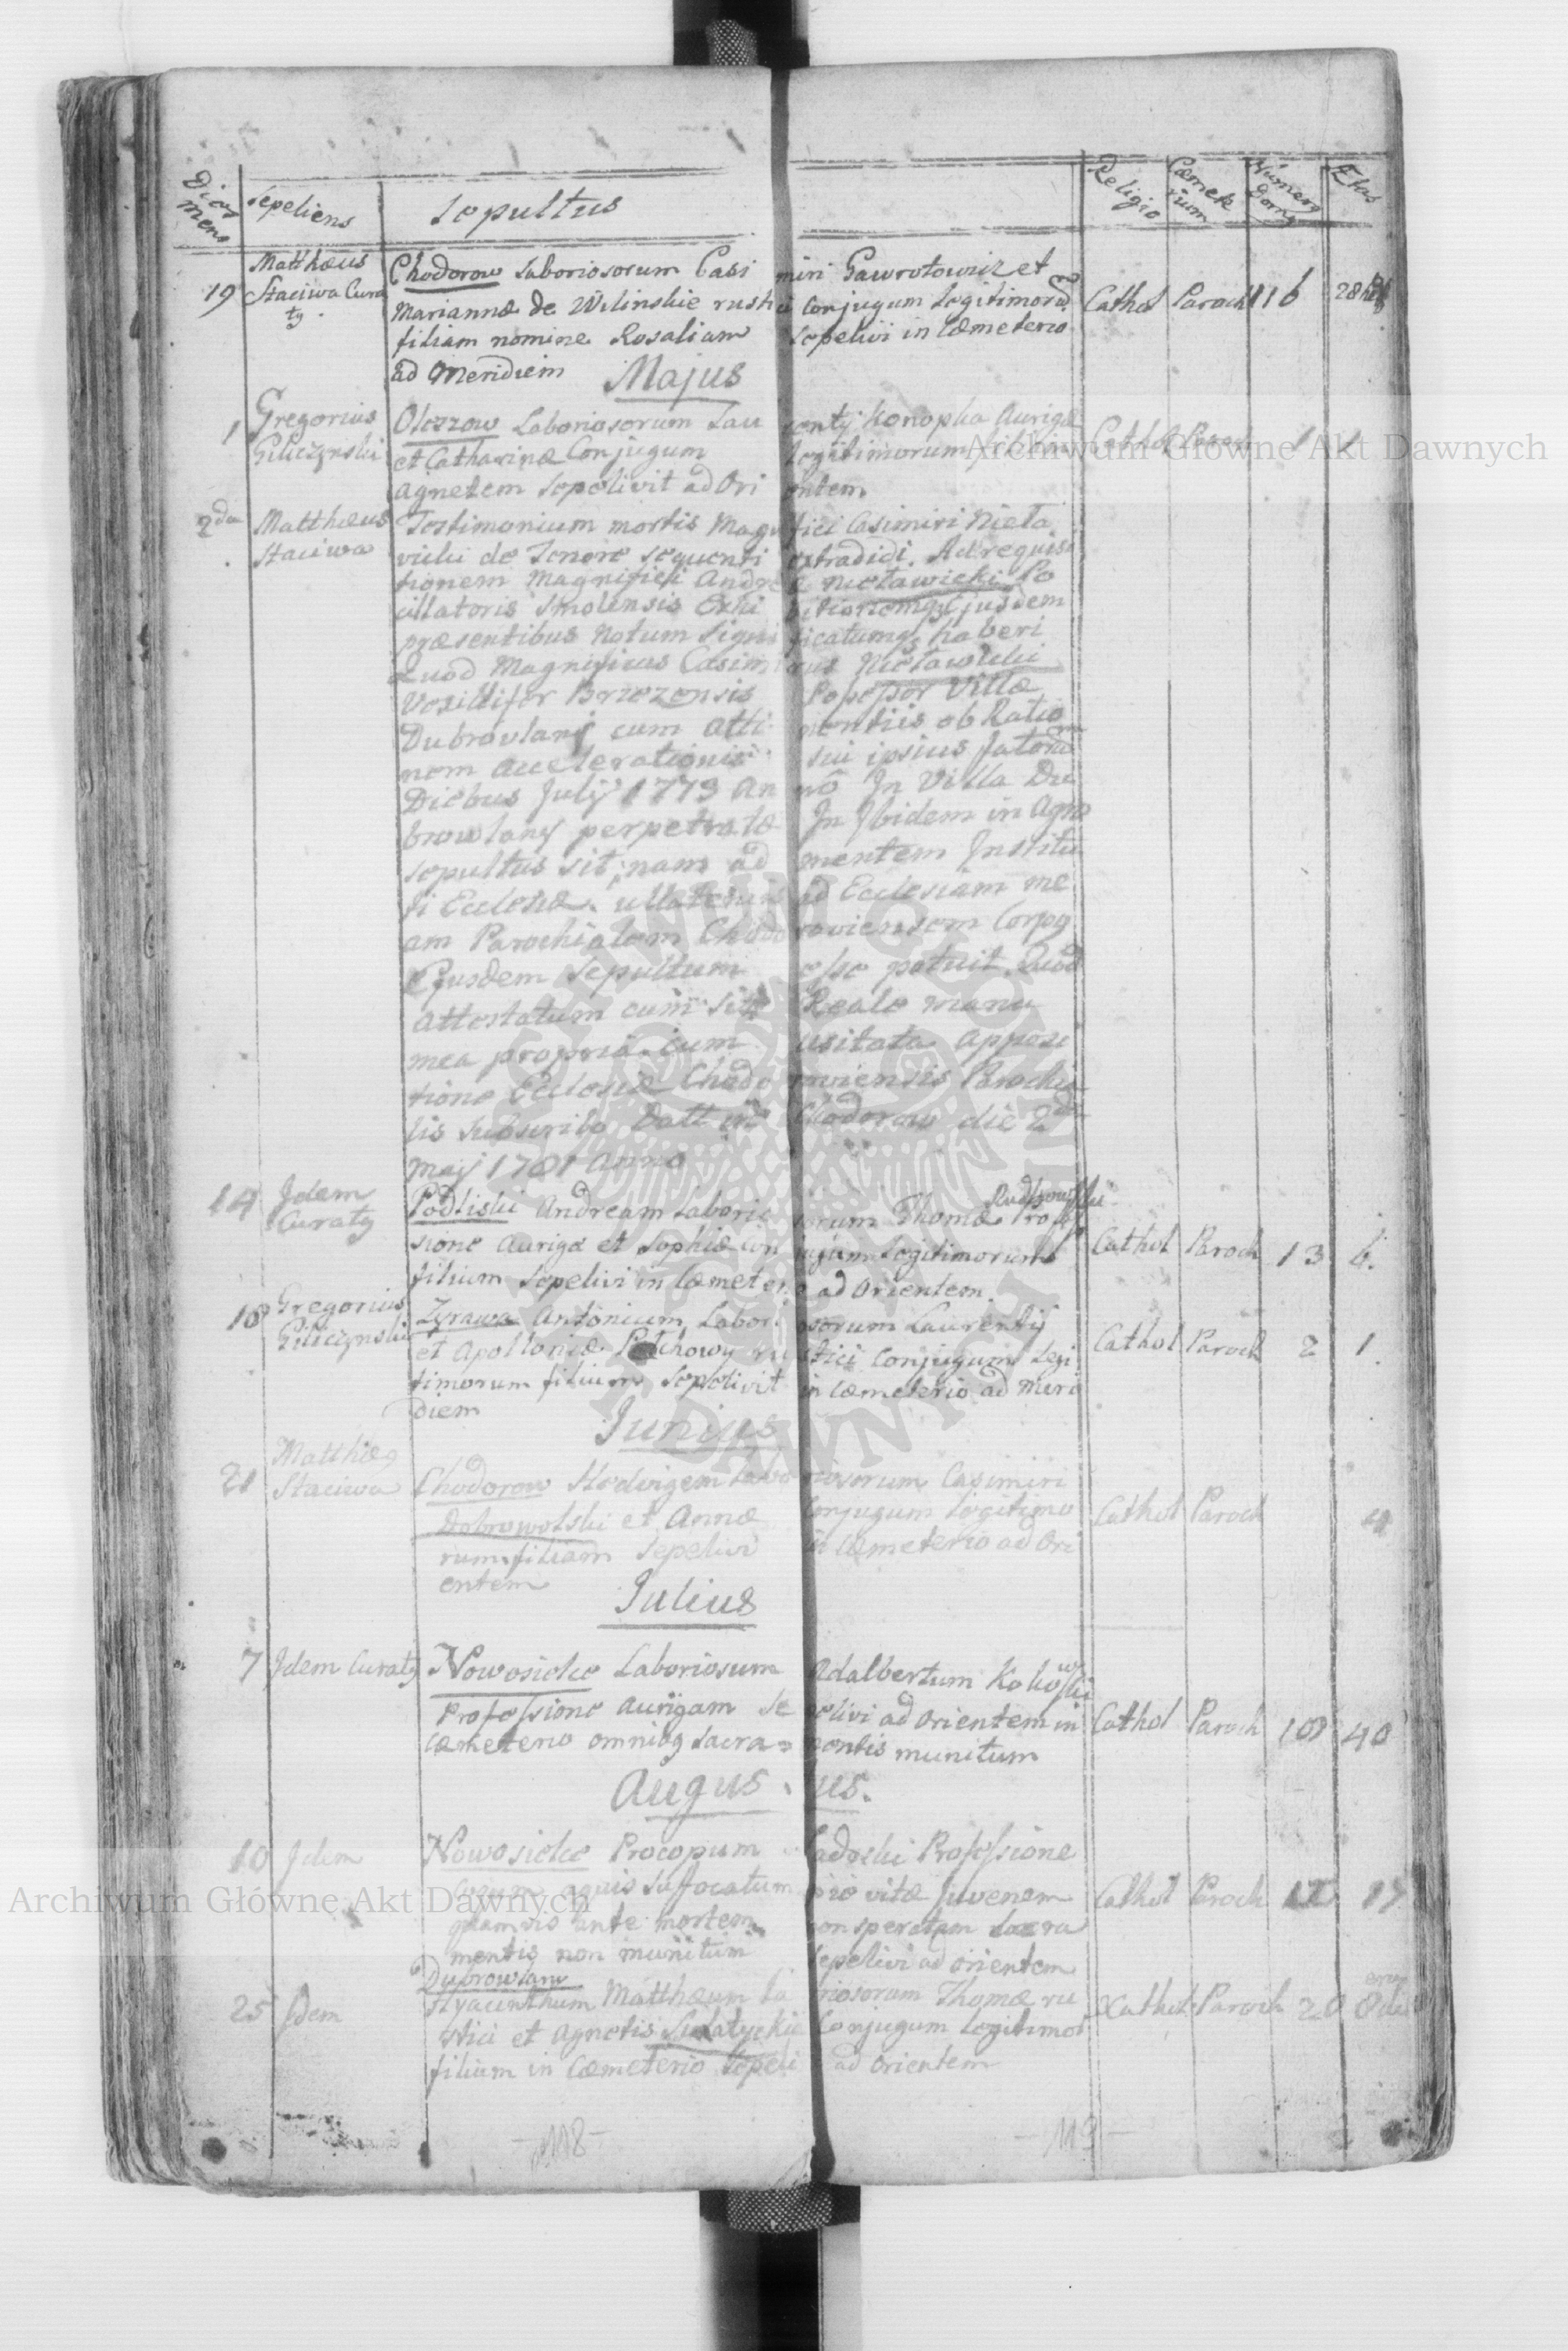 Dies
mens
Sepeliens
Sepultus
Religio
Cæmete
rium
Numerg
Domg
Ætas
19
Matthæus
Staciwa Cura
tg
Chodorow Laboriosorum Casi miri Gawrotowicz et
Mariannæ de Wilinskie rustici Conjugum Legitimorum
filiam nomine Rosaliam Sepelivi in Cæmeterio
ad Meridiem
Cathol Paroch 116 28
Majus
1
Gregorius
Giliczynski
Oleszow Laboriosorum Lau rentij Konopka Aurigæ
et Catharinæ Conjugum Legitimorum filiam
Agnetem Sepelivit ad Ori entem
Cathol Paroch 1 1
2da
Matthæus
Staciwa
Testimonium mortis Magnifici Casimiri Nieta
vicki de Tenore sequenti extradidi. Ad requisi
tionem Magnifici Andreæ Nietawicki Po
cillatoris Smolensis Exhi bitionemqz Ejusdem
præsentibus Notum Signi ficatumqz haberi
Quod Magnificus Casimirus Nietawicki
Vexillifer Brzezensis Possessor Villæ
Dubrovlany cum atti nentiis ob Ratio
nem accelerationis sui ipsius fatorum
Diebus Julij 1773 An nō In Villa Du
browlany perpetratæ In Ibidem in Agro
sepultus sit, nam ad mentem Institu
ti Ecclesiæ ullatenus ad Ecclesiam me
am Parochialem Chodo roviensem Corpg
Ejusdem Sepultum esse potuit. Quod
attestatum cum sit Reale manu
mea propria. cum usitata apposi
tione Ecclesiæ Chodo roviensis Parochia
lis subscribo Datt in Chodorow die 2da
Maij 1781 Anno
14
Idem
Curatg
Podliski Andream Laborio sorum Thomæ Profes
sione Aurigæ et Sophiæ Con jugum Legitimorum
filium Sepelivi in Cæmeterio ad Orientem.
Cathol Paroch 13 6.
18
Gregorius
Giliczynski
Zyrawa Antonium Labori osorum Laurentij
et Apolloniæ rustici Conjugum Legi
timorum filium Sepelivit in Cæmeterio ad Meri
diem
Cathol Paroch 2 1.
Junius
21
Matthæg
Staciwa
Chodorow Hedvigem Labo riosorum Casimiri
Dobrowolski et Annæ Conjugum Legitimo
rum filiam Sepelivi in Cæmeterio ad Ori
entem
Cathol Paroch 4
Julius
7
Idem Curatg
Nowosielce Laboriosum Adalbertum
Professione Aurigam Se pelivi ad Orientem in
Cæmeterio omnibg Sacra= mentis munitum
Cathol Paroch 101 40
Augus us.
10
Idem
Nowosielce Procopum Professione
aquis Suffocatum vitæ Juvenem
quamvis ante mortem Sacra
mentis non munitum Sepelivi ad orientem
Cathol Paroch 17
25
Idem
Dubrowlany
Hyacinthum Matthæum La boriosorum Thomæ ru
stici et Agnetis Conjugum Legitimor
filium in Cæmeterio Sepeli ad Orientem
Cathol Paroch 20 8
-118-
-119-
Archiwum Główne Akt Dawnych
Archiwum Główne Akt Dawnych
ARCHIWUM GŁÓWNE
AKT DAWNYCH